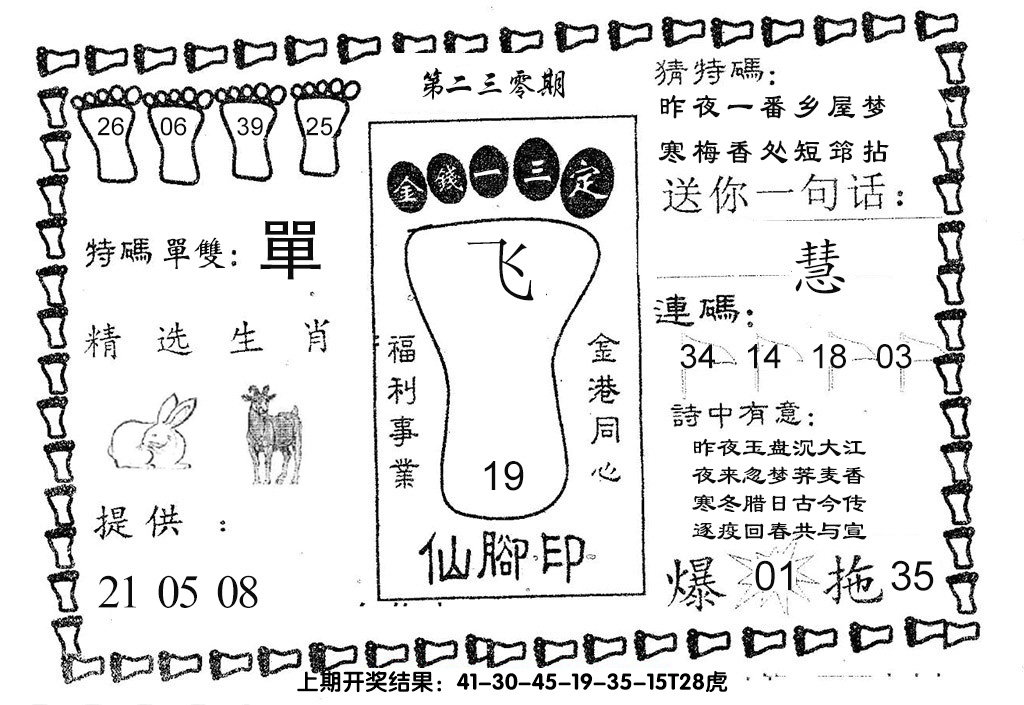 第二三零期
26 06 39 25
特碼單雙：單
精选生肖
提供：
21 05 08
金錢一三定
飞
19
福利事業
金港同心
仙腳印
猜特碼：
昨夜一番乡屋梦
寒梅香处短筇拈
送你一句话：
慧
連碼：
34 14 18 03
詩中有意：
昨夜玉盘沉大江
夜来忽梦荞麦香
寒冬腊日古今传
逐疫回春共与宣
爆 01 拖 35
上期开奖结果：41-30-45-19-35-15T28虎